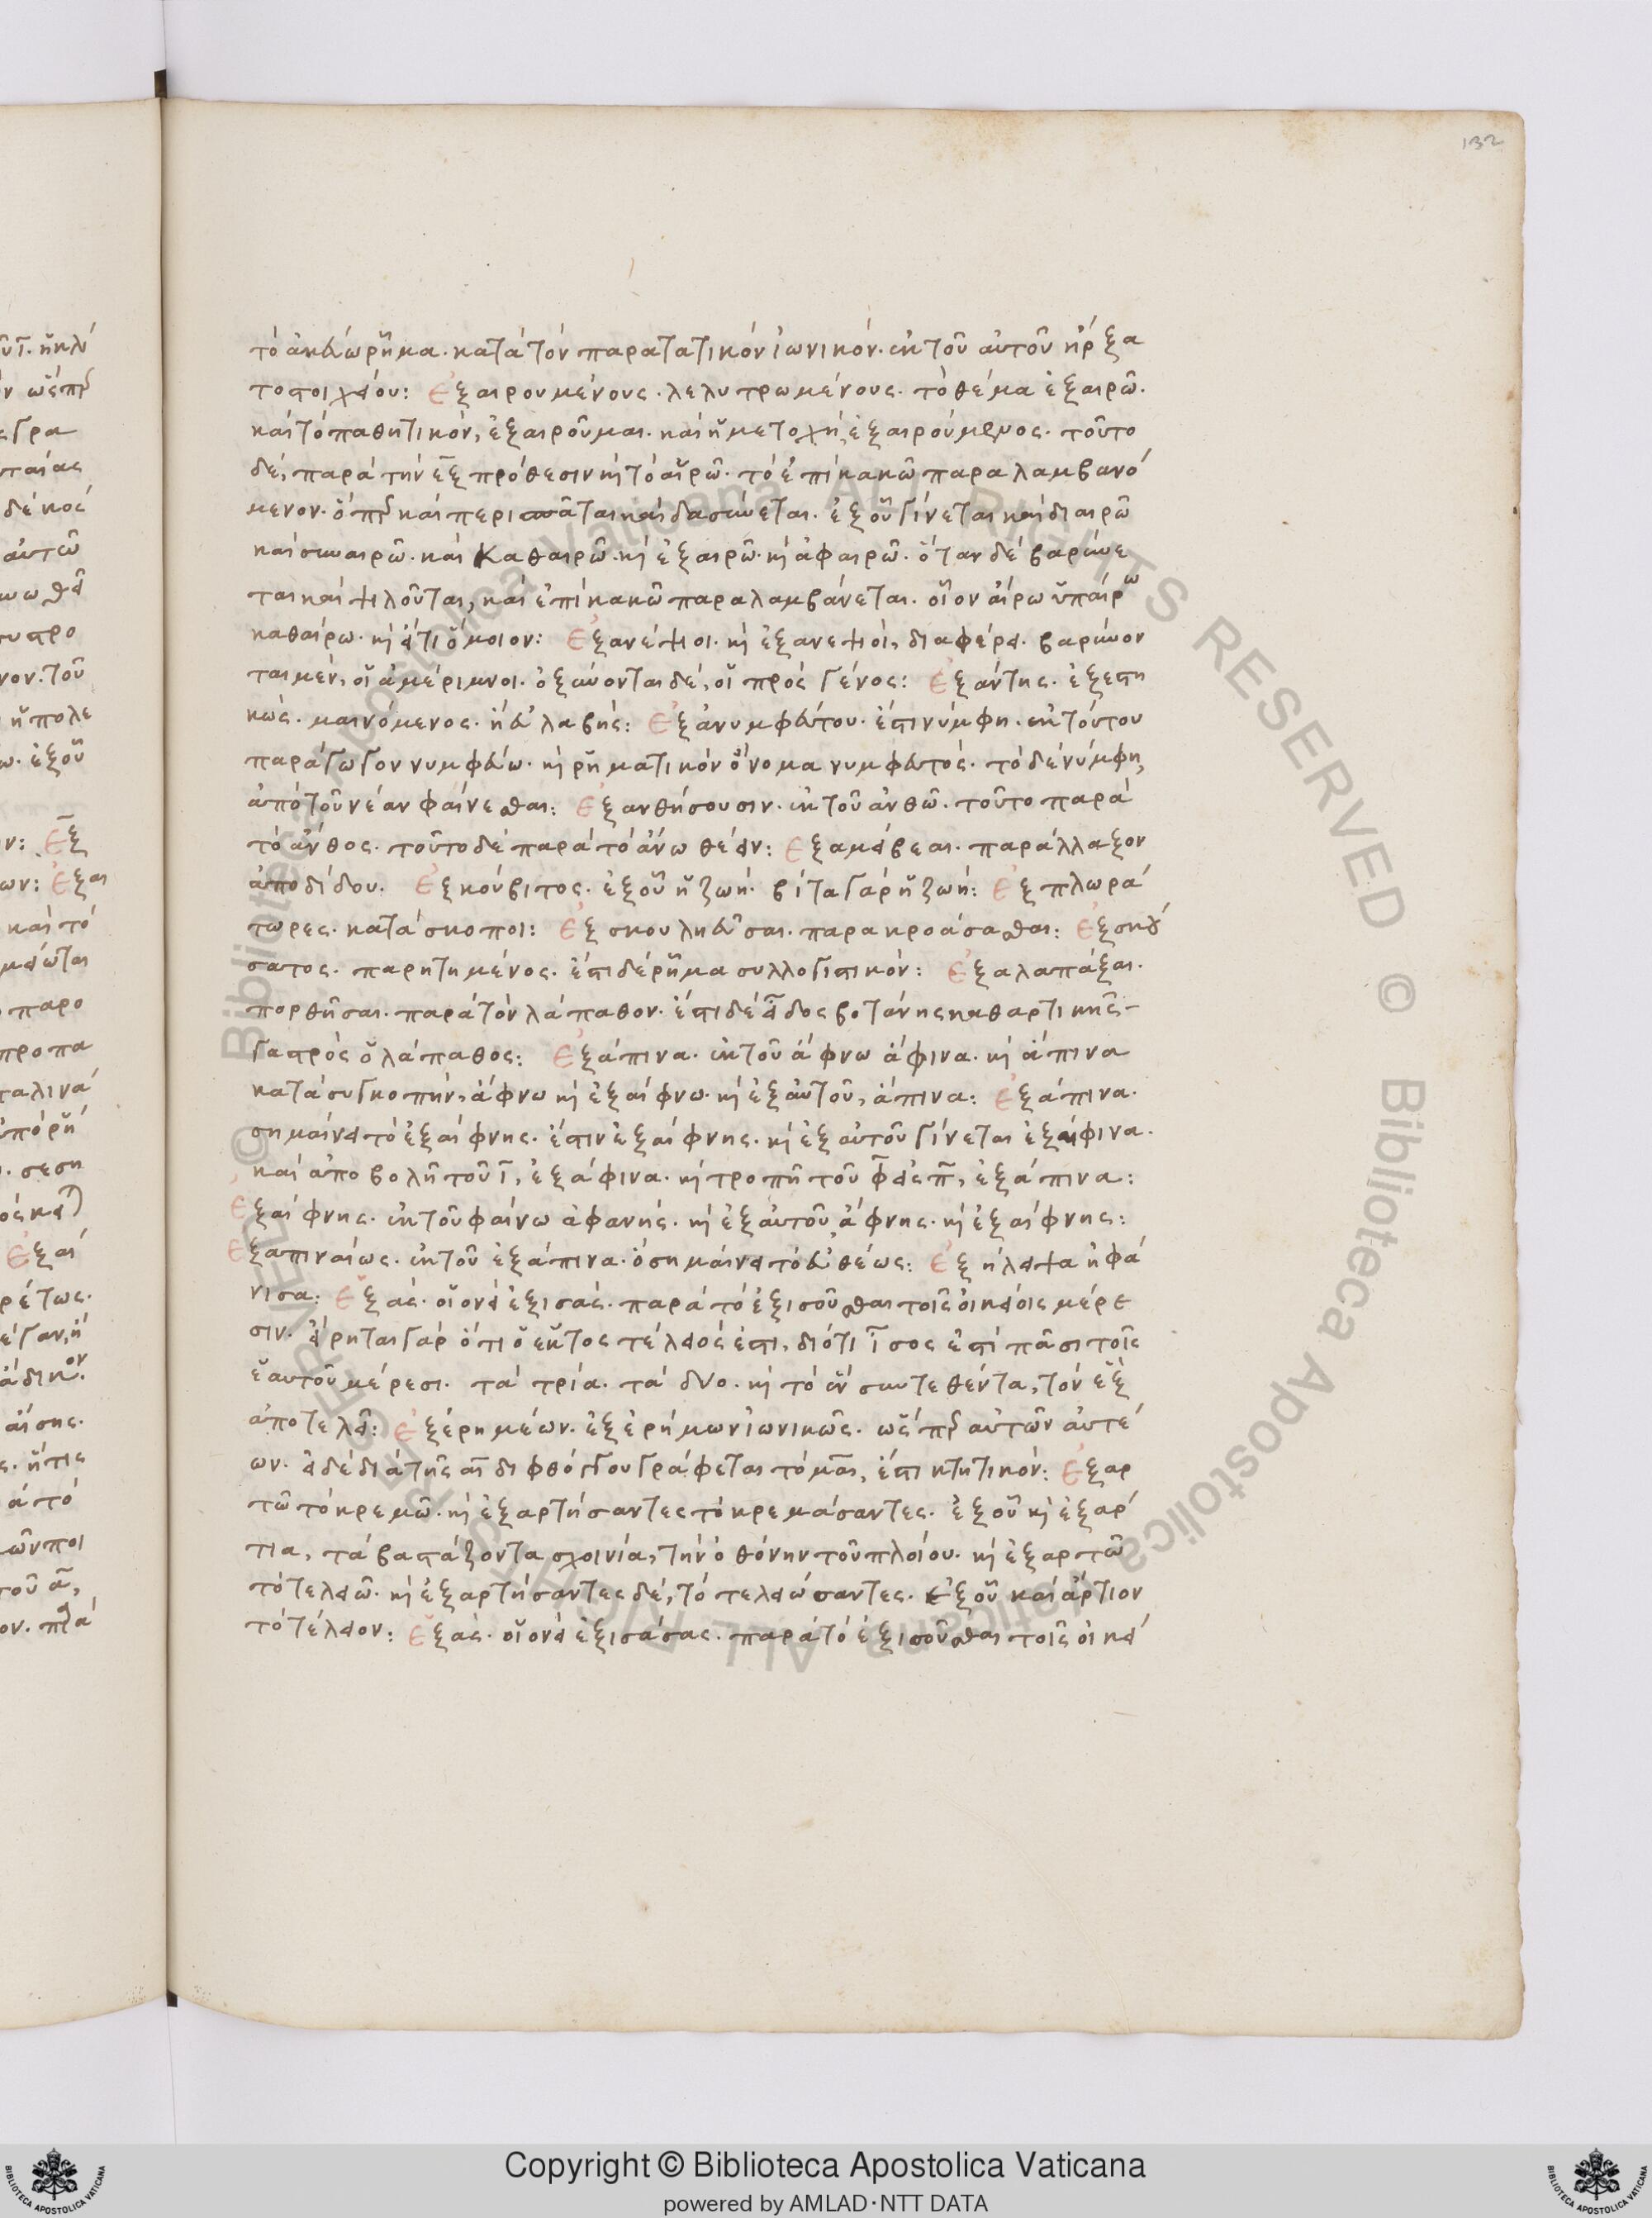 132
τὸ ἀκεύω ῥῆμα. κατὰ τὸν παρατατικὸν ἰωνικόν. ἐκ τοῦ αὐτοῦ ἤρξα
το στοιχείου: Ἐξαιρουμένους. λελυτρωμένους. τὸ θέμα ἐξαιρῶ.
καὶ τὸ παθητικόν, ἐξαιροῦμαι. καὶ ἡ μετοχὴ ἐξαιρούμενος. τοῦτο
δὲ, παρὰ τὴν ἐξ πρόθεσιν κ(αὶ) τὸ αἱρῶ. τὸ ἐπὶ κακῶ παραλαμβανό
μενον. ὅπερ καὶ περισπᾶται καὶ δασύνεται. ἐξ οὗ γίνεται καὶ διαιρῶ
καὶ συναιρῶ. καὶ καθαιρῶ. κ(αὶ) ἐξαιρῶ. κ(αὶ) ἀφαιρῶ. ὅταν δὲ βαρύνε
ται καὶ ψιλοῦται, καὶ ἐπὶ κακῶ παραλαμβάνεται. οἷον αἴρω ὑπαίρω
καθαίρω. κ(αὶ) εἴτι ὅμοιον: Ἐξανέψιοι. κ(αὶ) ἐξανεψιοὶ, διαφέρει. βαρύνον
ται μὲν, οἱ ἀμέριμνοι. ὀξύνονται δὲ, οἱ πρὸς γένος: Ἐξάντης. ἐξεστη
κώς. μαινόμενος. ἢ εὐλαβής: Ἐξ ἀνυμφεύτου. ἔστι νύμφη. ἐκ τούτου
παράγωγον νυμφεύω. κ(αὶ) ῥηματικὸν ὄνομα νυμφευτός. τὸ δὲ νύμφη,
ἀπὸ τοῦ νέαν φαίνεσθαι: Ἐξανθήσουσιν. ἐκ τοῦ ἀνθῶ. τοῦτο παρὰ
τὸ ἄνθος. τοῦτο δὲ παρὰ τὸ ἄνω θέειν: Ἐξαμείβεαι. παράλλαξον
ἀποδίδου. Ἐξκούβιτος. ἐξ οὗ ἡ ζωή. βίτα γὰρ ἡ ζωή: Ἐξπλωρά
τωρες. κατάσκοποι: Ἐξσκουλκεῦσαι. παρακροάσασθαι: Ἐξσκού
σατος. παρητημένος. ἔστι δὲ ῥῆμα συλλογιστικόν: Ἐξαλαπάξαι.
πορθῆσαι. παρὰ τὸν λάπαθον. ἔστι δὲ εἶδος βοτάνης καθαρτικῆς
γαστρὸς ὁ λάπαθος: Ἐξάπινα. ἐκ τοῦ ἄφνω ἄφινα. κ(αὶ) ἄπινα
κατὰ συγκοπὴν, ἄφνω κ(αὶ) ἐξαίφνω. κ(αὶ) ἐξ αὐτοῦ, ἄπινα: Ἐξάπινα.
σημαίνει τὸ ἐξαίφνης. ἔστιν ἐξαίφνης. κ(αὶ) ἐξ αὐτοῦ γίνεται ἐξαίφινα.
καὶ ἀποβολῇ τοῦ ι, ἐξάφινα. κ(αὶ) τροπῇ τοῦ φ εἰς π, ἐξάπινα:
Ἐξαίφνης. ἐκ τοῦ φαίνω ἀφανής. κ(αὶ) ἐξ αὐτοῦ ἄφνης. κ(αὶ) ἐξαίφνης:
Ἐξαπιναίως. ἐκ τοῦ ἐξάπινα. ὃ σημαίνει τὸ εὐθέως: Ἐξήλειψα ἠφά
νισα: Ἑξάς. οἱονεὶ ἐξισάς. παρὰ τὸ ἐξισοῦσθαι τοῖς οἰκείοις μέρε
σιν. εἴρηται γὰρ ὅτι ὁ ἕκτος τέλειός ἐστι, διότι ἴσος ἐστὶ πᾶσι τοῖς
ἑαυτοῦ μέρεσι. τὰ τρία. τὰ δύο. κ(αὶ) τὸ ἓν συντεθέντα, τὸν ἓξ
ἀποτελεῖ: Ἐξερημέων. ἐξ ἐρήμων ἰωνικῶς. ὥσπερ αὐτῶν αὐτέ
ων. εἰ δὲ διὰ τῆς αι διφθόγγου γράφεται τὸ μαι, ἔστι κτητικόν: Ἐξαρ
τῶ τὸ κρεμῶ. κ(αὶ) ἐξαρτήσαντες τὸ κρεμάσαντες. ἐξ οὗ κ(αὶ) ἐξάρ
τια, τὰ βαστάζοντα σχοινία, τὴν ὀθόνην τοῦ πλοίου. κ(αὶ) ἐξαρτῶ
τὸ τελειῶ. κ(αὶ) ἐξαρτήσαντες δὲ, τὸ τελειώσαντες. ἐξ οὗ καὶ ἄρτιον
τὸ τέλειον: Ἑξάς. οἱονεὶ ἐξισάσας. παρὰ τὸ ἐξισοῦσθαι τοῖς οἰκεί
Copyright © Biblioteca Apostolica Vaticana
powered by AMLAD·NTT DATA